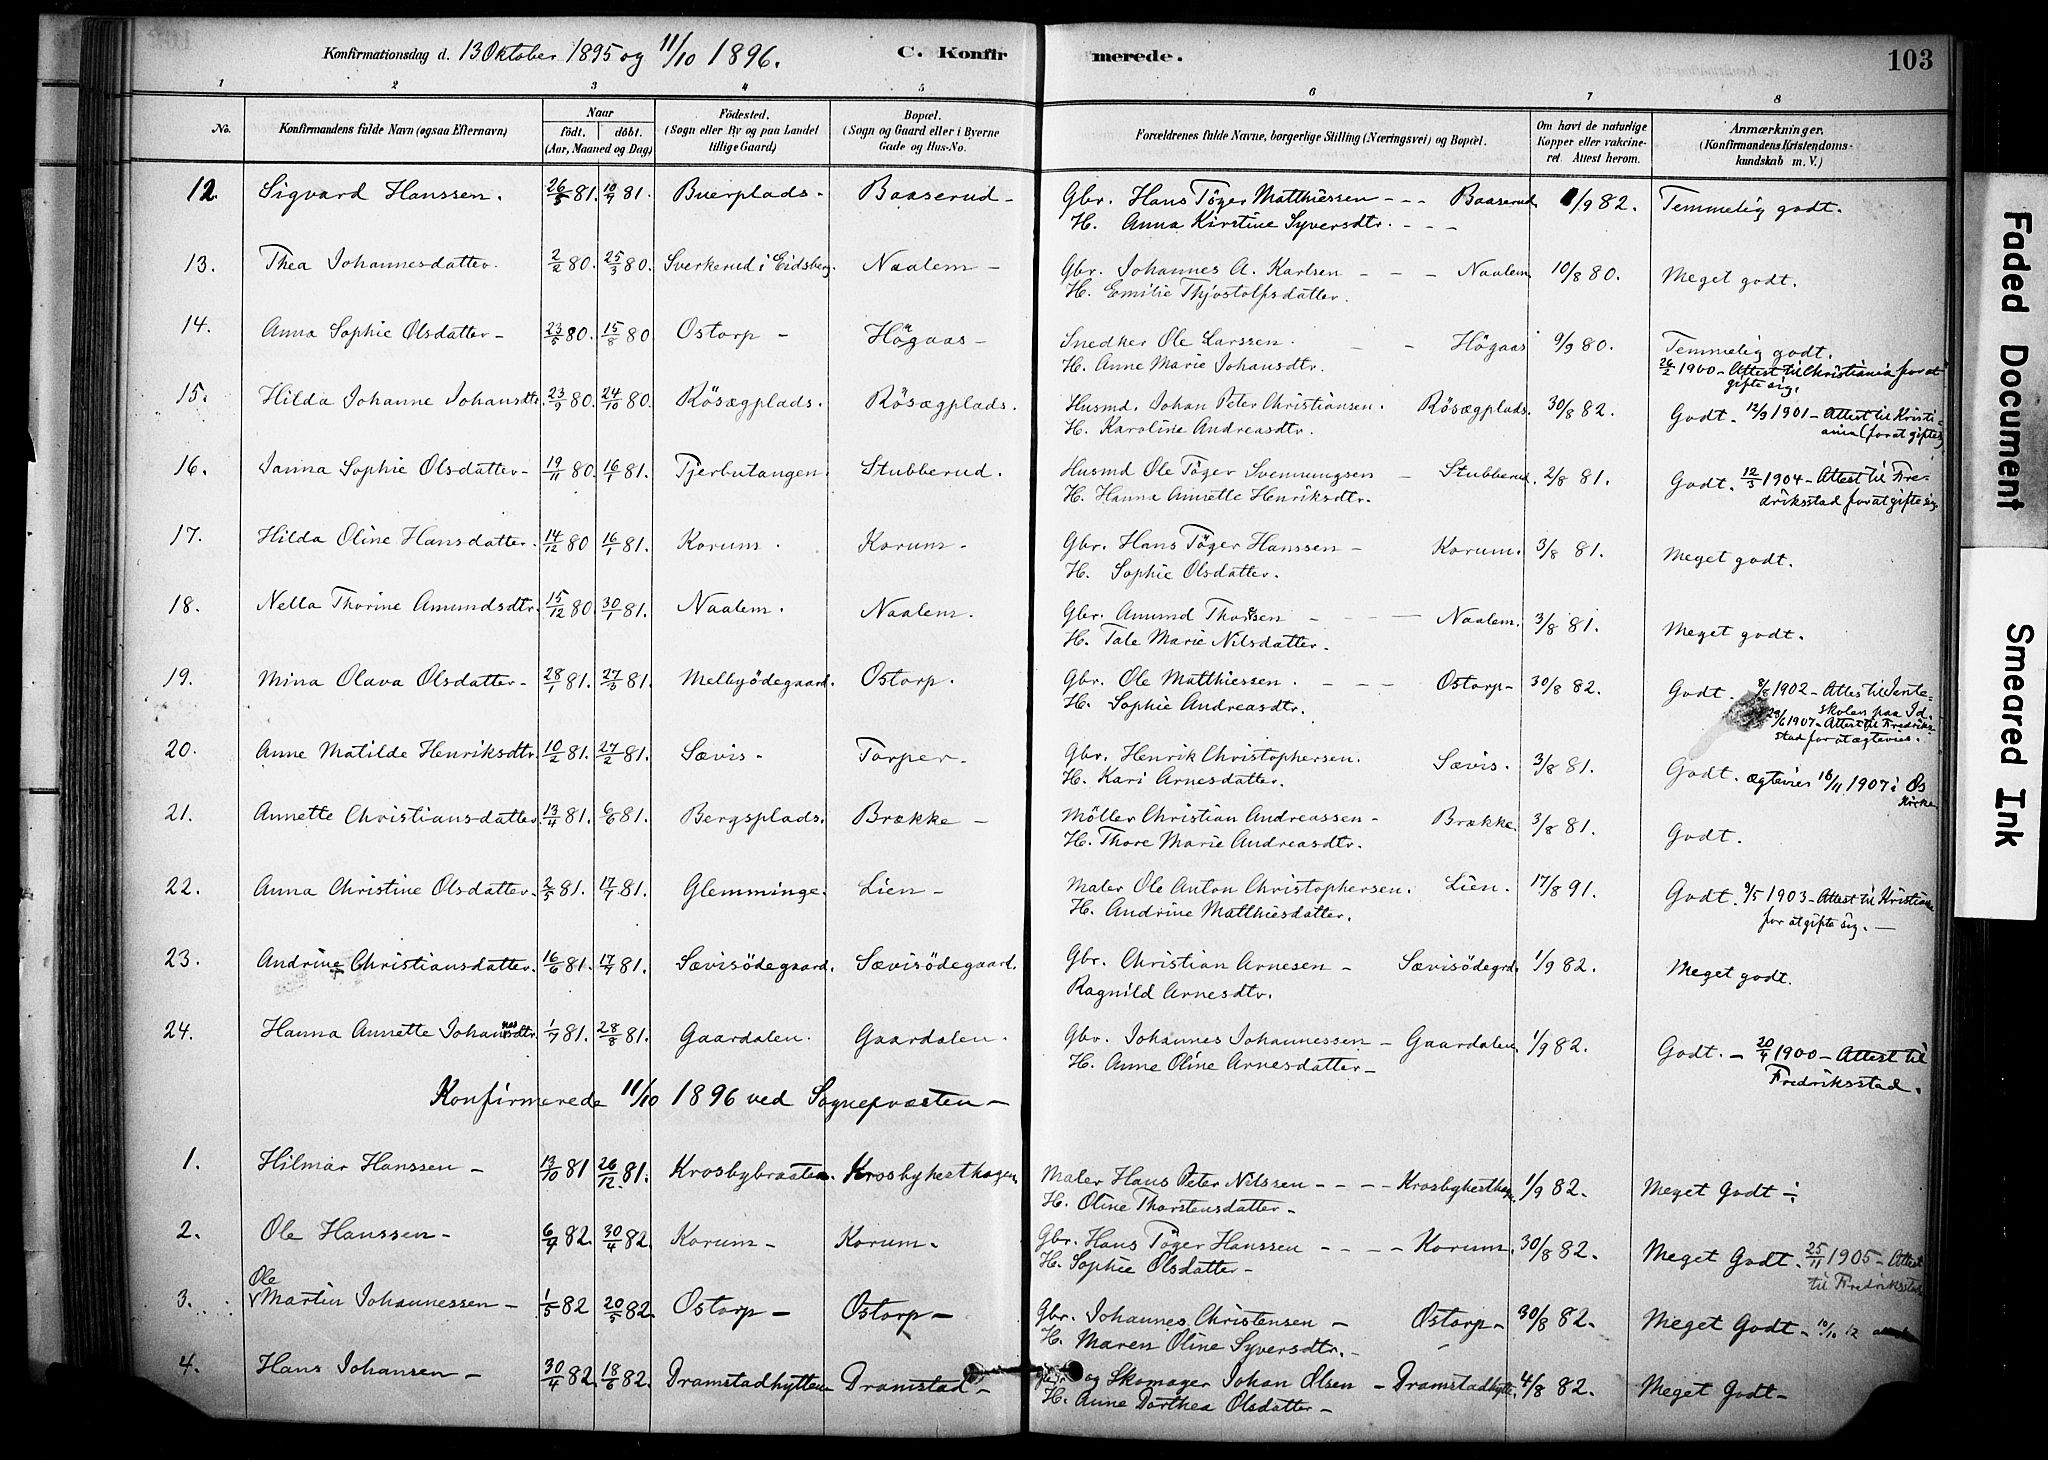 Konfirmationsdag d. 13 Oktober 1895 og 11/10 1896. C. Konfirmerede. 103
1 2 3 4 5 6 7 8
No. Konfirmandens fulde Navn (ogsaa Efternavn) Naar födt. döbt. (Aar, Maaned og Dag) Födested. (Sogn eller By og paa Landet tillige Gaard) Bopæl. (Sogn og Gaard eller i Byerne Gade og Hus-No. Forældrenes fulde Navne, borgerlige Stilling (Næringsvei) og Bopæl. Om havt de naturlige Kopper eller vakcineret Attest herom. Anmærkninger. (Konfirmandens Kristendomskundskab m. V.)
12. Sigvard Hanssen. 26/5 81. 10/7 81. Buerplads - Baaserud - Gbr. Hans Töger Matthiessen - - - Baaserud 1/9 82. Temmelig godt.
H. Anna Kirstine Syversdtr. - - -
13. Thea Johannesdatter. 2/2 80. 25/3 80. Sverkerud i Eidsberg. Naalem - Gbr. Johannes A. Karlsen - - - Naalem 10/8 80. Meget godt.
H. Emilie Thjostolfsdatter.
14. Anna Sophie Olsdatter - 23/5 80. 15/8 80 Ostorp - Högaas - Snedker Ole Larssen. - - Högaas 9/9 80. Temmelig godt.
H. Anne Marie Johansdtr. 26/2 1900 - Attest til Christiania for at gifte sig.
15. Hilda Johanne Johansdtr. 23/9 80. 24/10 80. Rösægplads. Rösægplads. Husmd. Johan Peter Christiansen. Rösægplads. 30/8 82. Godt. 12/9 1901 - Attest til Kristiania (for at gifte
H. Karoline Andreasdtr.
16. Janna Sophie Olsdatter - 19/11 80. 16/1 81. Tjerbutangen. Stubberud. Husmd Ole Töger Svennungsen - Stubberud. 2/8 81. Godt. 12/3 1904 - Attest til Fredriksstad for at gifte sig.
H. Hanna Annette Henriksdtr.
17. Hilda Oline Hansdatter. 14/12 80 16/1 81. Korum. Korum. Gbr. Hans Töger Hanssen - Korum. 3/8 81. Meget godt.
H. Sophie Olsdatter.
18. Nella Thorine Amundsdtr. 15/12 80. 30/1 81. Naalem. Naalem. Gbr. Amund Thorsen - - - Naalem. 3/8 81. Meget godt.
H. Tale Marie Nilsdatter.
19. Mina Olava Olsdatter - 28/1 81. 27/3 81. Melbyödegaard. Ostorp. Gbr. Ole Matthiessen. - - - Ostorp - 30/8 82. Godt. 8/8 1902 - Attest til Jenteskolen paa Id.
H. Sophie Andreasdtr. 29/6 1907 - Attest til Fredriksstad for at ægtevies.
20. Anne Matilde Henriksdtr. 10/2 81. 27/2 81. Sævis. Torper. Gbr. Henrik Christophersen. Sævis. 3/8 81. Godt. ægteviet 16/11 1907 i Os Kirke
H. Kari Arnesdatter.
21. Annette Christiansdatter. 13/4 81. 6/6 81. Bergsplads. Brække - Möller Christian Andreassen - Brække. 3/8 81. Godt.
H. Thore Marie Andreasdtr.
22. Anna Christine Olsdatter. 2/5 81. 17/7 81. Glemminge. Lien - Maler Ole Anton Christophersen. Lien. 17/8 91. Godt. 9/5 1903 - Attest til Kristiania for at gifte sig. -
H. Andrine Matthiesdatter.
23. Andrine Christiansdatter. 16/6 81. 17/7 81. Sævisödegaard. Sævisödegaard. Gbr. Christian Arnesen - Sævisödegrd. 1/9 82. Meget godt.
Ragnild Arnesdtr.
24. Hanna Annette Johannesdtr. 1/7 81. 28/8 81. Gaardalen. Gaardalen. Gbr. Johannes Johannessen - Gaardalen. 1/9 82. Godt. - 20/4 1900 - Attest til Fredriksstad.
H. Anne Oline Arnesdatter -
Konfirmerede 11/10 1896 ved Sognepræsten -
1. Hilmar Hanssen - 13/10 81 26/12 81. Krosbybraaten. Krosbyhesthagen. Maler Hans Peter Nilssen - - - - Krosbyhesthage. 1/9 82. Meget Godt -
H. Oline Thorstensdatter -
2. Ole Hanssen - 6/4 82. 30/4 82. Korum - Korum. Gbr. Hans Töger Hanssen - - - - Korum. 30/8 82. Meget Godt. 25/11 1905 - Attest til Fredriksstad
H. Sophie Olsdatter -
3. Ole Martin Johannessen - 1/5 82 20/5 82. Ostorp - Ostorp - Gbr. Johannes Christensen - Ostorp - 30/8 82. Meget Godt - 10/10 12
H. Maren Oline Syversdtr. -
4. Hans Johansen - 30/4 82. 18/6 82. Dramstadhytten Dramstad - og Skomager Johan Olsen - Dramstadhytt. 4/8 82. Meget Godt -
H. Anne Dorthea Olsdatter -
Faded Document
Smeared Ink